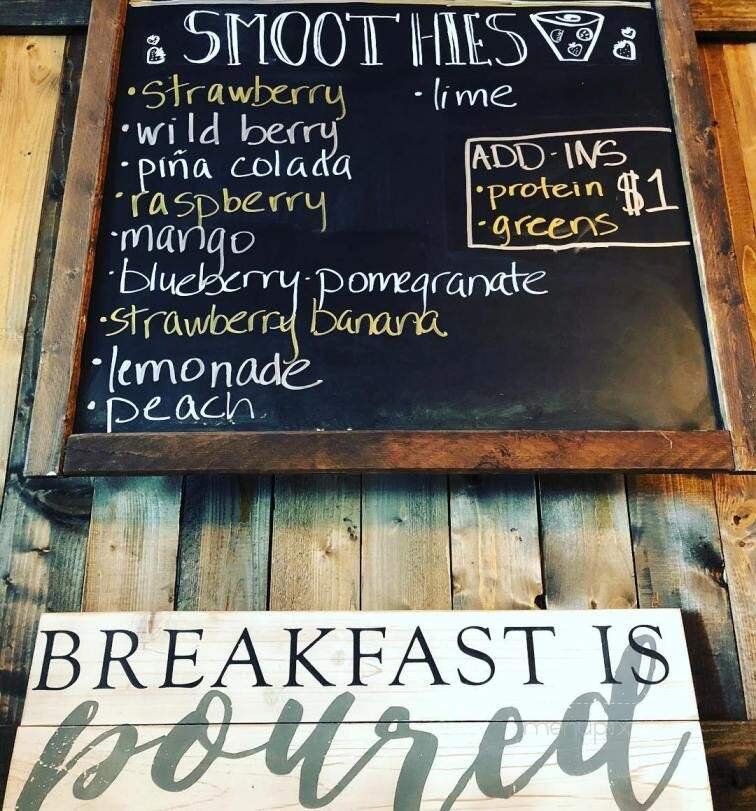 SMOOTHIES
• strawberry
• wild berry
• piña colada
• raspberry
• mango
• blueberry-pomegranate
• strawberry banana
• lemonade
• peach
• lime
ADD-INS
• protein
• greens
$1
BREAKFAST IS
poured
menupix